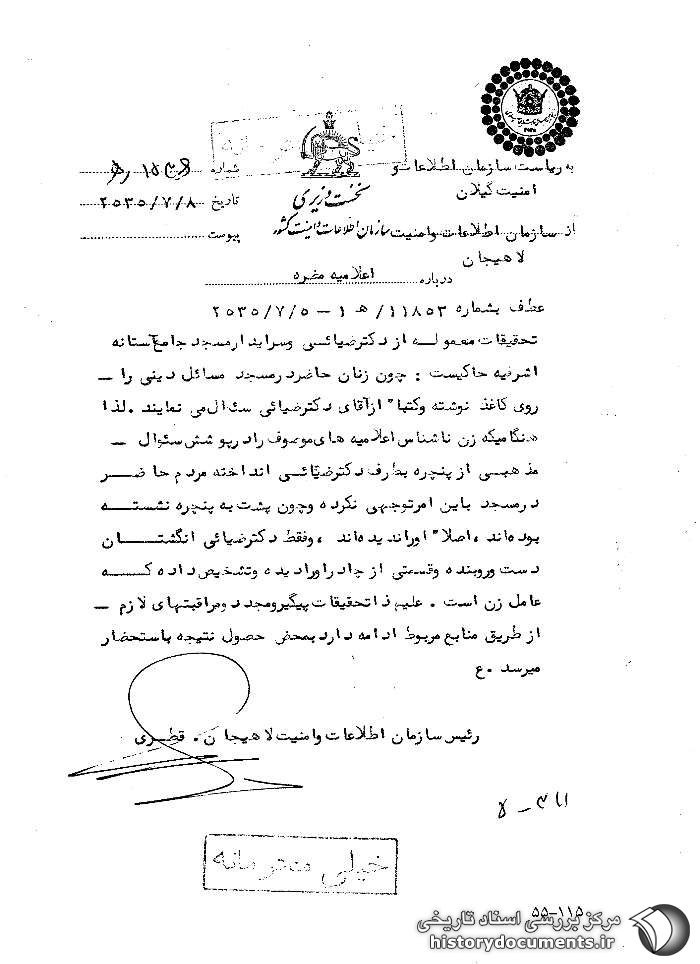 خیلی محرمانه
به ریاست سازمان اطلاعات و
امنیت گیلان
از سازمان اطلاعات وامنیت
لاهیجان
نخست وزیری
سازمان اطلاعات و امنیت کشور
شماره
تاریخ ۲۵۳۵/۷/۸
پیوست
درباره اعلامیه مضره
عطف بشماره ۱۱۸۵۳/ هـ ۱ – ۲۵۳۵/۷/۵
تحقیقات معموله از دکترضیائی وسرایدارمسجد جامع آستانه
اشرفیه حاکیست : چون زنان حاضردرمسجد مسائل دینی را –
روی کاغذ نوشته وکتبا" ازآقای دکترضیائی سئوال می نمایند .لذا
هنگامیکه زن ناشناس اعلامیه های موصوف رادرپوشش سئوال –
مذهبی از پنجره بطرف دکترضیائی انداخته مردم حاضر
درمسجد باین امرتوجهی نکرده وچون پشت به پنجره نشسته
بوده‌اند ،اصلا" اوراندیده‌اند ،وفقط دکترضیائی انگشتان
دست وروبنده وقسمتی از چادراورادیده وتشخیص داده که
عامل زن است . علیهذاتحقیقات پیگیرومجدد ومراقبتهای لازم –
از طریق منابع مربوط ادامه دارد بمحض حصول نتیجه باستحضار
میرسد .ع
رئیس سازمان اطلاعات وامنیت لاهیجان . قطری
خیلی محرمانه
۵۵-۱۱۵
مرکز بررسی اسناد تاریخی
historydocuments.ir